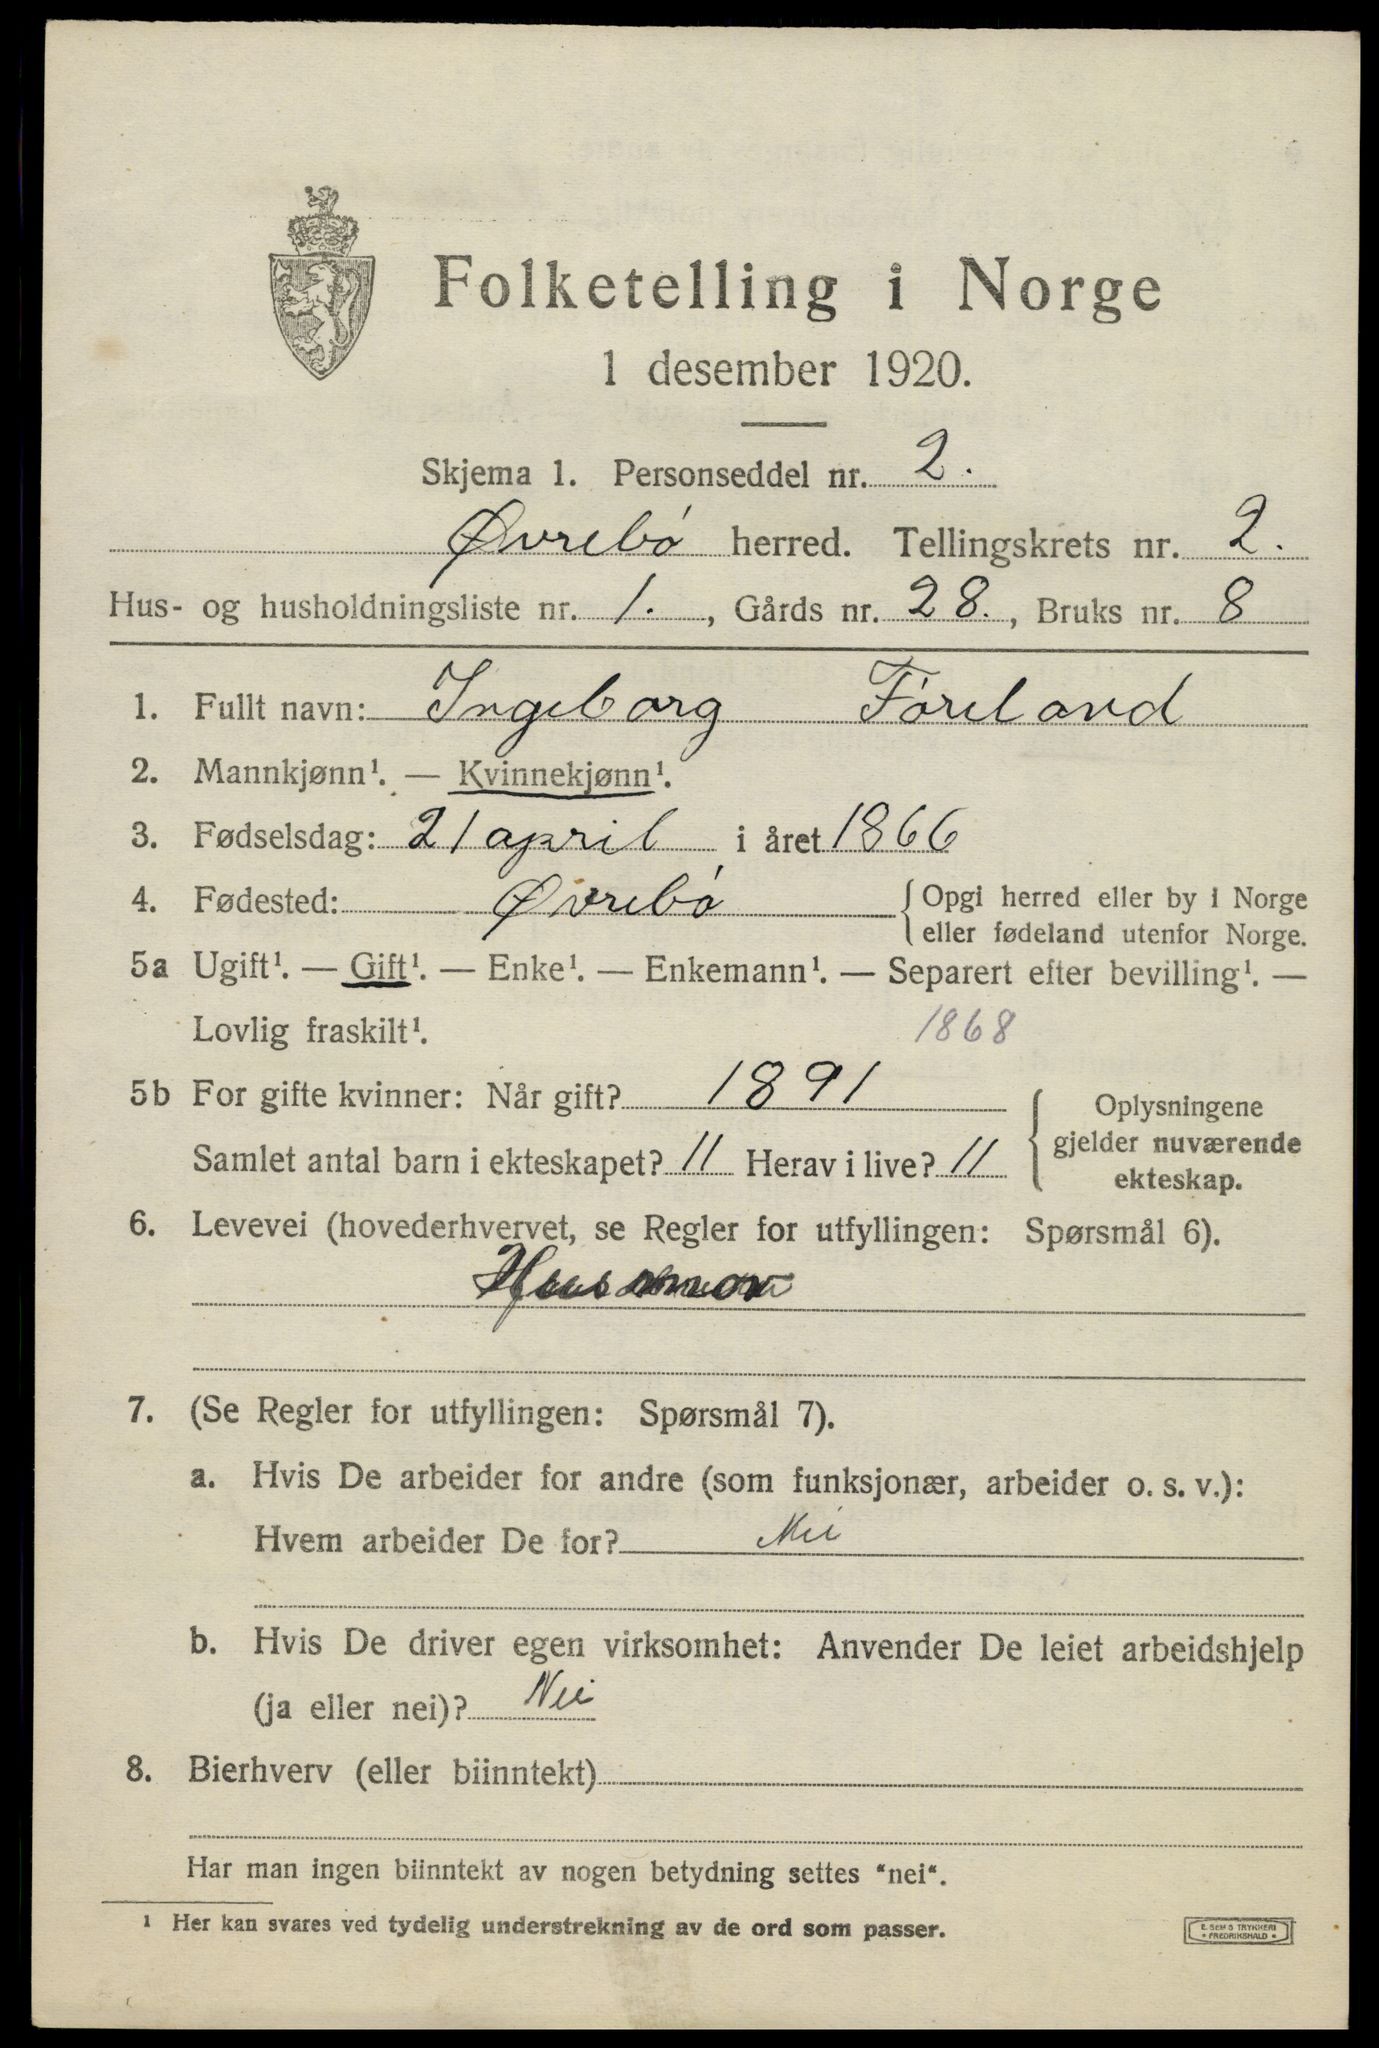 Folketelling i Norge
1 desember 1920.
Skjema 1. Personseddel nr. 2.
Øvrebó herred. Tellingskrets nr. 2.
Hus- og husholdningsliste nr. 1. , Gårds nr. 28. , Bruks nr. 8
1. Fullt navn: Ingeborg Fóreland
2. Mannkjønn¹. — Kvinnekjønn¹.
3. Fødselsdag: 21 april i året 1866
4. Fødested: Øvrebó { Opgi herred eller by i Norge
eller fødeland utenfor Norge.
5a Ugift¹. — Gift¹. — Enke¹. — Enkemann¹. — Separert efter bevilling¹. —
Lovlig fraskilt¹. 1868
5b For gifte kvinner: Når gift? 1891
Samlet antal barn i ekteskapet? 11 Herav i live? 11
{ Oplysningene
gjelder nuværende
ekteskap.
6. Levevei (hovederhvervet, se Regler for utfyllingen: Spørsmål 6).
Husmor
7. (Se Regler for utfyllingen: Spørsmål 7).
a. Hvis De arbeider for andre (som funksjonær, arbeider o. s. v.):
Hvem arbeider De for? Nei
b. Hvis De driver egen virksomhet: Anvender De leiet arbeidshjelp
(ja eller nei)? Nei
8. Bierhverv (eller biinntekt)
Har man ingen biinntekt av nogen betydning settes "nei".
¹ Her kan svares ved tydelig understrekning av de ord som passer.
E. SEM'S TRYKKERI
• FREDRIKSHALD •